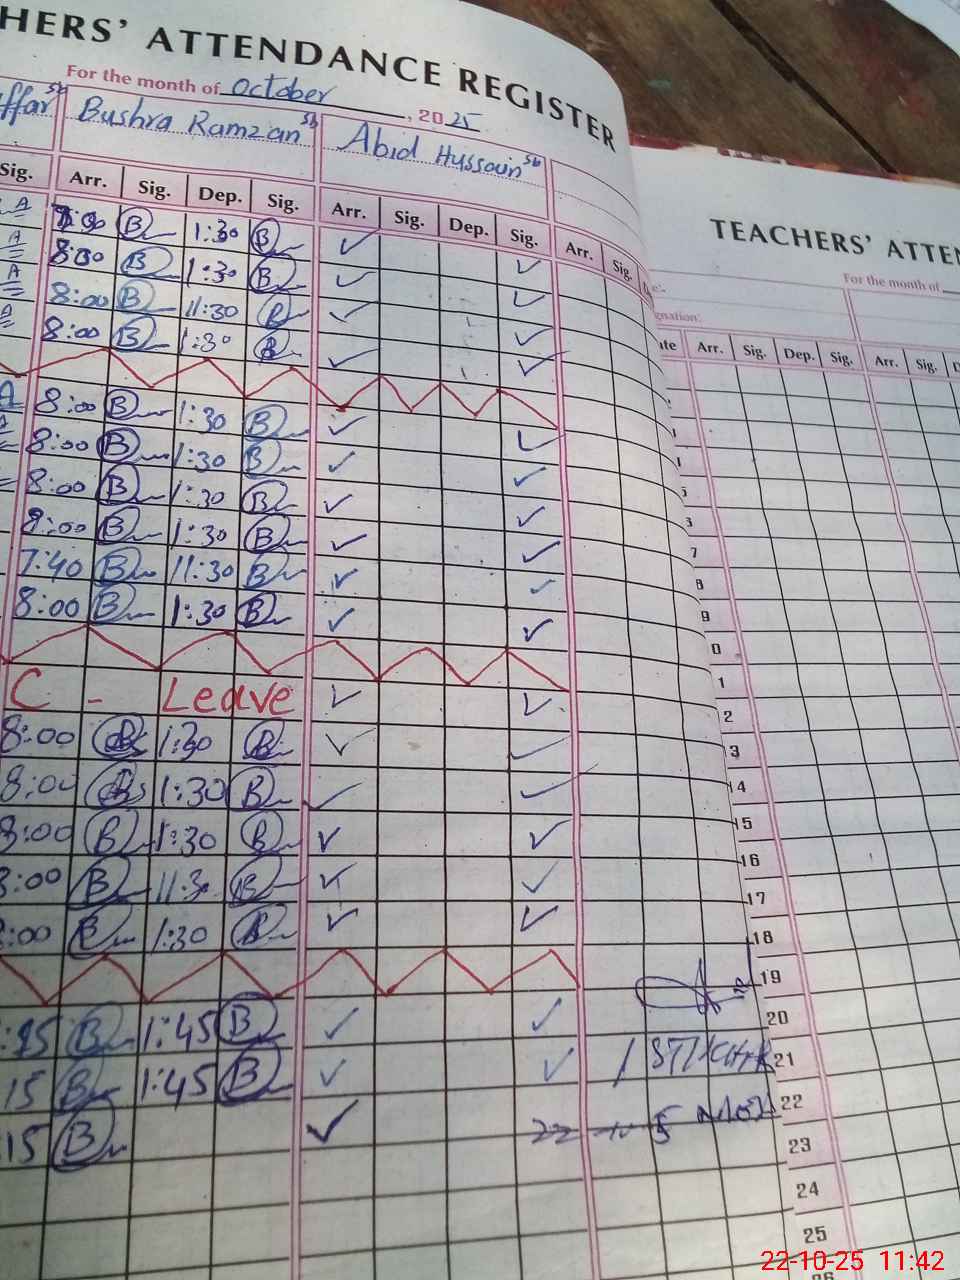 HERS' ATTENDANCE REGISTER
For the month of October, 2025
ffar sb Bushra Ramzan sb Abid Hussain sb
Sig. Arr. Sig. Dep. Sig. Arr. Sig. Dep. Sig. Arr. Sig.
A 8:00 B 1:30 B ✓ ✓
A 8:00 B 1:30 B ✓ ✓
A 8:00 B 11:30 B ✓ ✓
A 8:00 B 1:30 B ✓ ✓
A 8:00 B 1:30 B ✓ ✓
A 8:00 B 1:30 B ✓ ✓
8:00 B 1:30 B ✓ ✓
8:00 B 1:30 B ✓ ✓
7:40 B 11:30 B ✓ ✓
8:00 B 1:30 B ✓ ✓
C - Leave ✓ ✓
8:00 B 1:30 B ✓ ✓
8:00 B 1:30 B ✓ ✓
8:00 B 1:30 B ✓ ✓
8:00 B 11:30 B ✓ ✓
8:00 B 1:30 B ✓ ✓
:15 B 1:45 B ✓ ✓
15 B 1:45 B ✓ ✓
:15 B ✓
22
TEACHERS' ATTEN
For the month of
gnation:
ate Arr. Sig. Dep. Sig. Arr. Sig. D
8
9
0
1
2
3
14
15
16
17
18
19
20
21
22
23
24
25
22-10-25 11:42